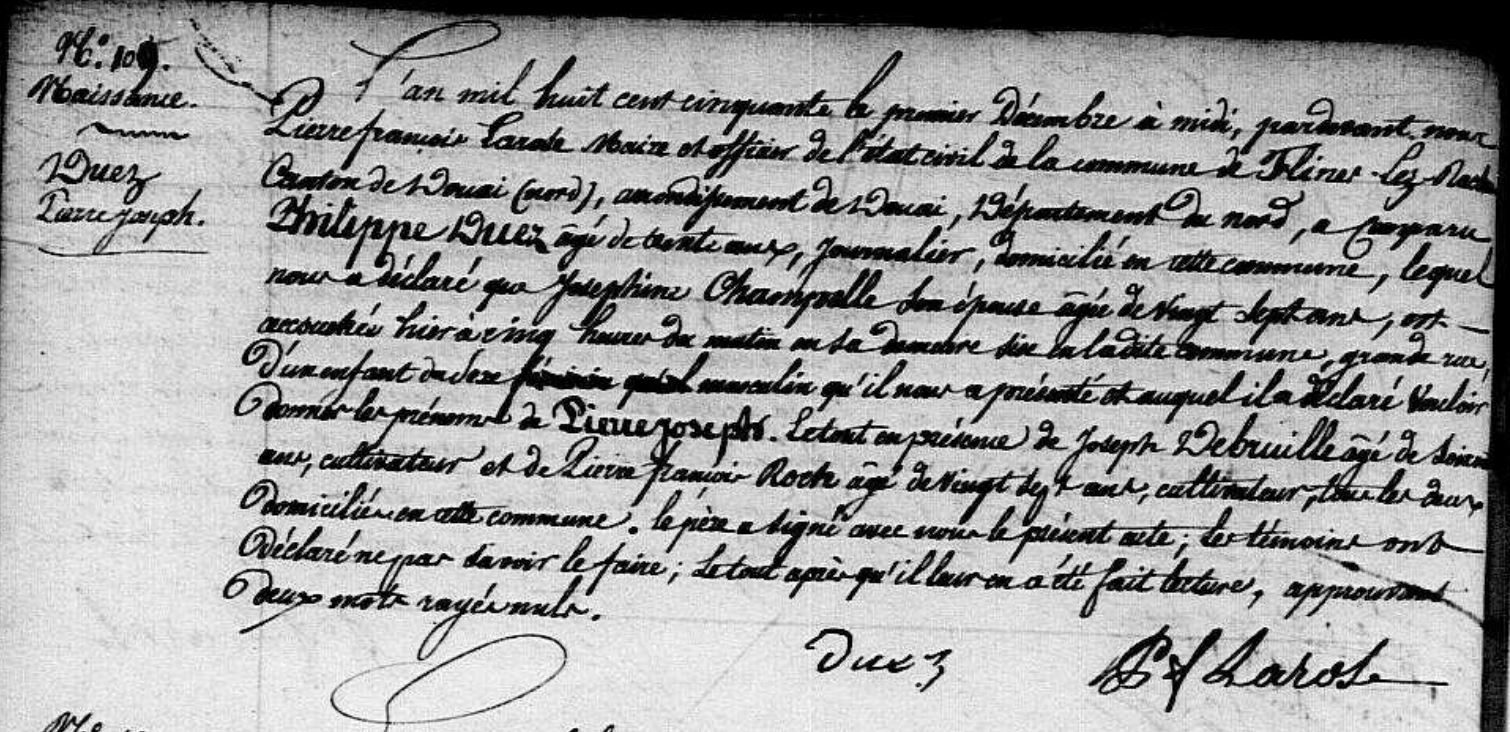 N.° 109.
Naissance.
Duez
Pierre joseph.
L'an mil huit cent cinquante le premier Décembre à midi, pardevant nous
Pierre françois Larose Maire et officier de l'état civil de la commune de Flines-lez-Raches
Canton de Douai (nord), arrondissement de Douai, Département du nord, a comparu
Philippe Duez âgé de trente ans, journalier, domicilié en cette commune, lequel
nous a déclaré que Josephine Champelle son épouse âgée de vingt sept ans, est
accouchée hier à cinq heures du matin en sa demeure sise en ladite commune, grande rue,
D'un enfant du sexe féminin qu'il masculin qu'il nous a présenté et auquel il a déclaré vouloir
donner les prénoms de Pierre joseph. Le tout en présence de Joseph Debruille âgé de
ans, cultivateur et de Pierre françois Roch âgé de vingt sept ans, cultivateur, tous les deux
Domiciliés en cette commune. le père a signé avec nous le présent acte; les témoins ont
Déclaré ne pas savoir le faire; le tout après qu'il leur en a été fait lecture, approuvant
Deux mots rayés nuls.
Duez
P f Larose